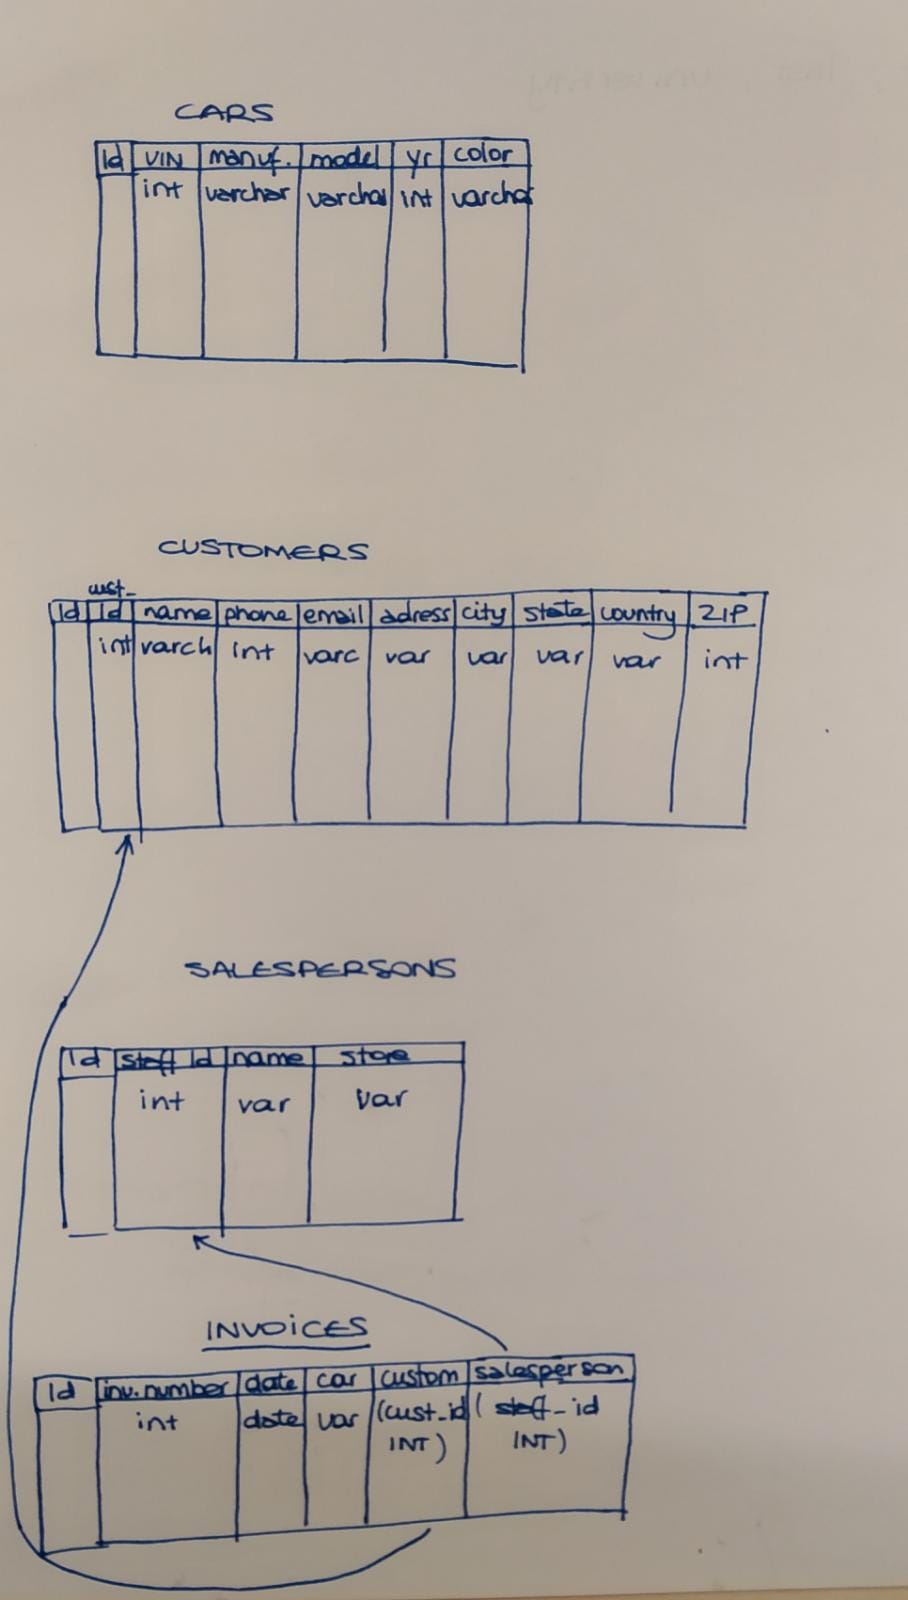 CARS
Id VIN manuf. model yr color
int varchar varchar int varchar
CUSTOMERS
cust_
Id Id name phone email adress city state country ZIP
int varch int varc var var var var int
SALESPERSONS
Id staff Id name store
int var var
INVOICES
Id inv.number date car custom salesperson
int date var (cust_id (staff_id
INT) INT)